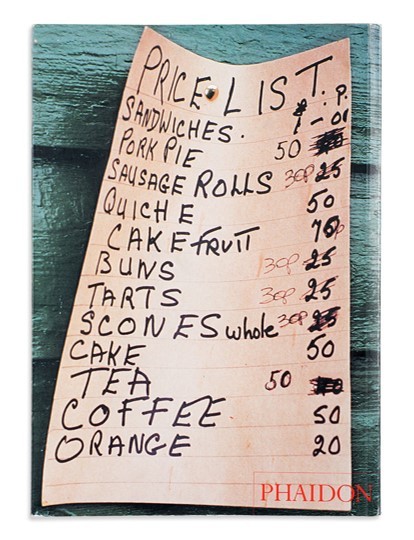 PRICE LIST.
£ : P.
SANDWICHES. 1 - 00
PORK PIE 50
SAUSAGE ROLLS 30p 25
QUICHE 50
CAKE FRUIT 75p
BUNS 30p 25
TARTS 30p 25
SCONES whole 30p 25
CAKE 50
TEA 50
COFFEE 50
ORANGE 20
PHAIDON